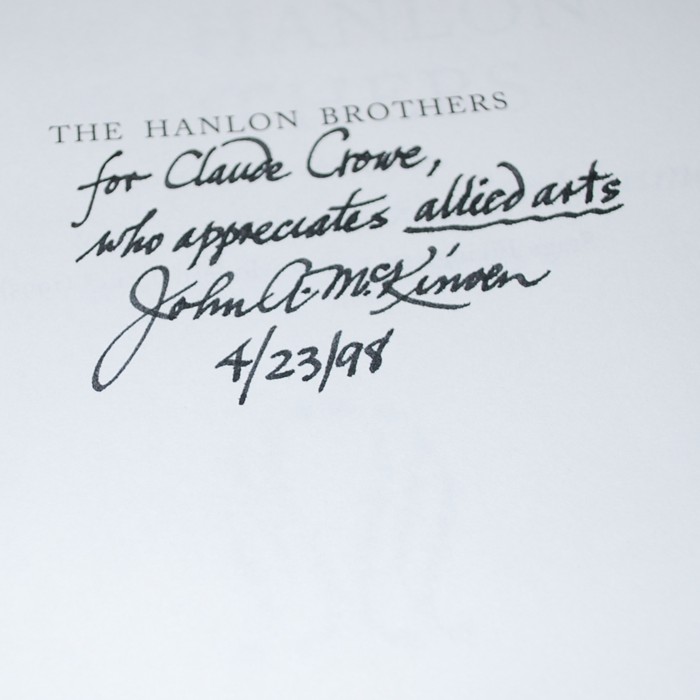 THE HANLON BROTHERS
for Claude Crowe,
who appreciates allied arts
John A. McKinven
4/23/98